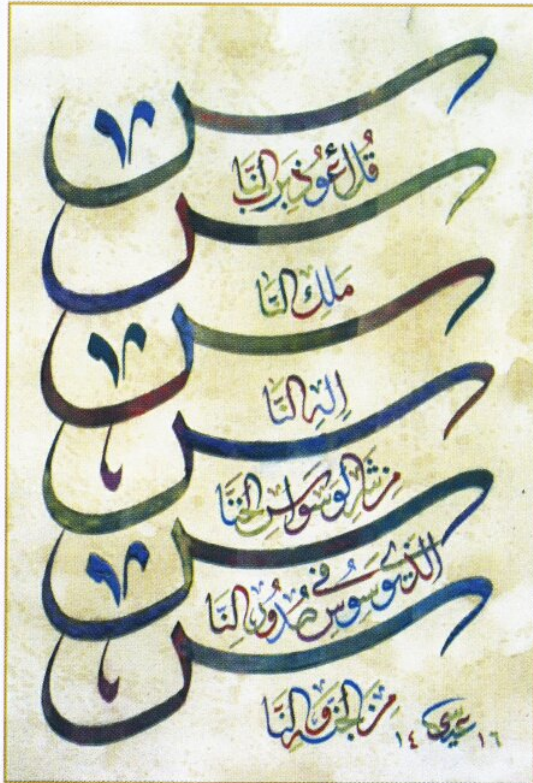 قُل أَعُوذُ بِرَبِّ النَّاس
مَلِكِ النَّاس
إِلهِ النَّاس
مِن شَرِّ الوَسوَاسِ الخَنَّاس
الَّذِي يُوَسوِسُ فِي صُدُورِ النَّاس
مِنَ الجِنَّةِ وَ النَّاس
١٤ ١٦